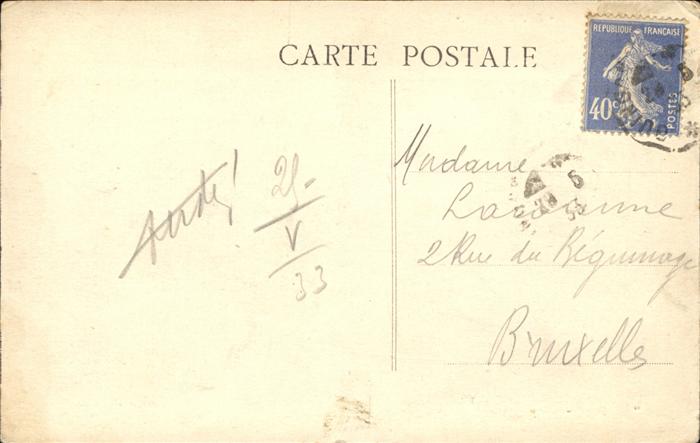 CARTE POSTALE
REPUBLIQUE FRANÇAISE
40c
POSTES
25-
V
33
Madame
2 Rue du Béguinage
Bruxelles